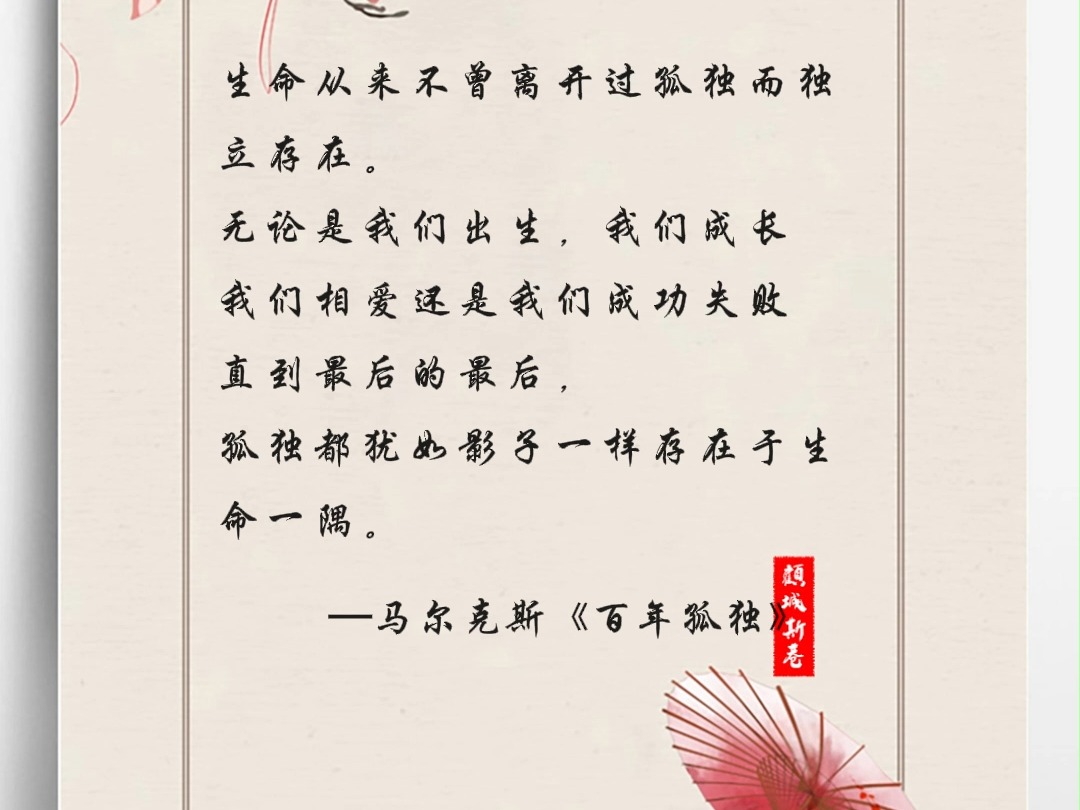 生命从来不曾离开过孤独而独
立存在。
无论是我们出生，我们成长
我们相爱还是我们成功失败
直到最后的最后，
孤独都犹如影子一样存在于生
命一隅。
—马尔克斯《百年孤独》
顾城斯卷